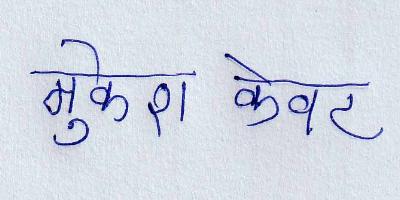 मुकेश केवट